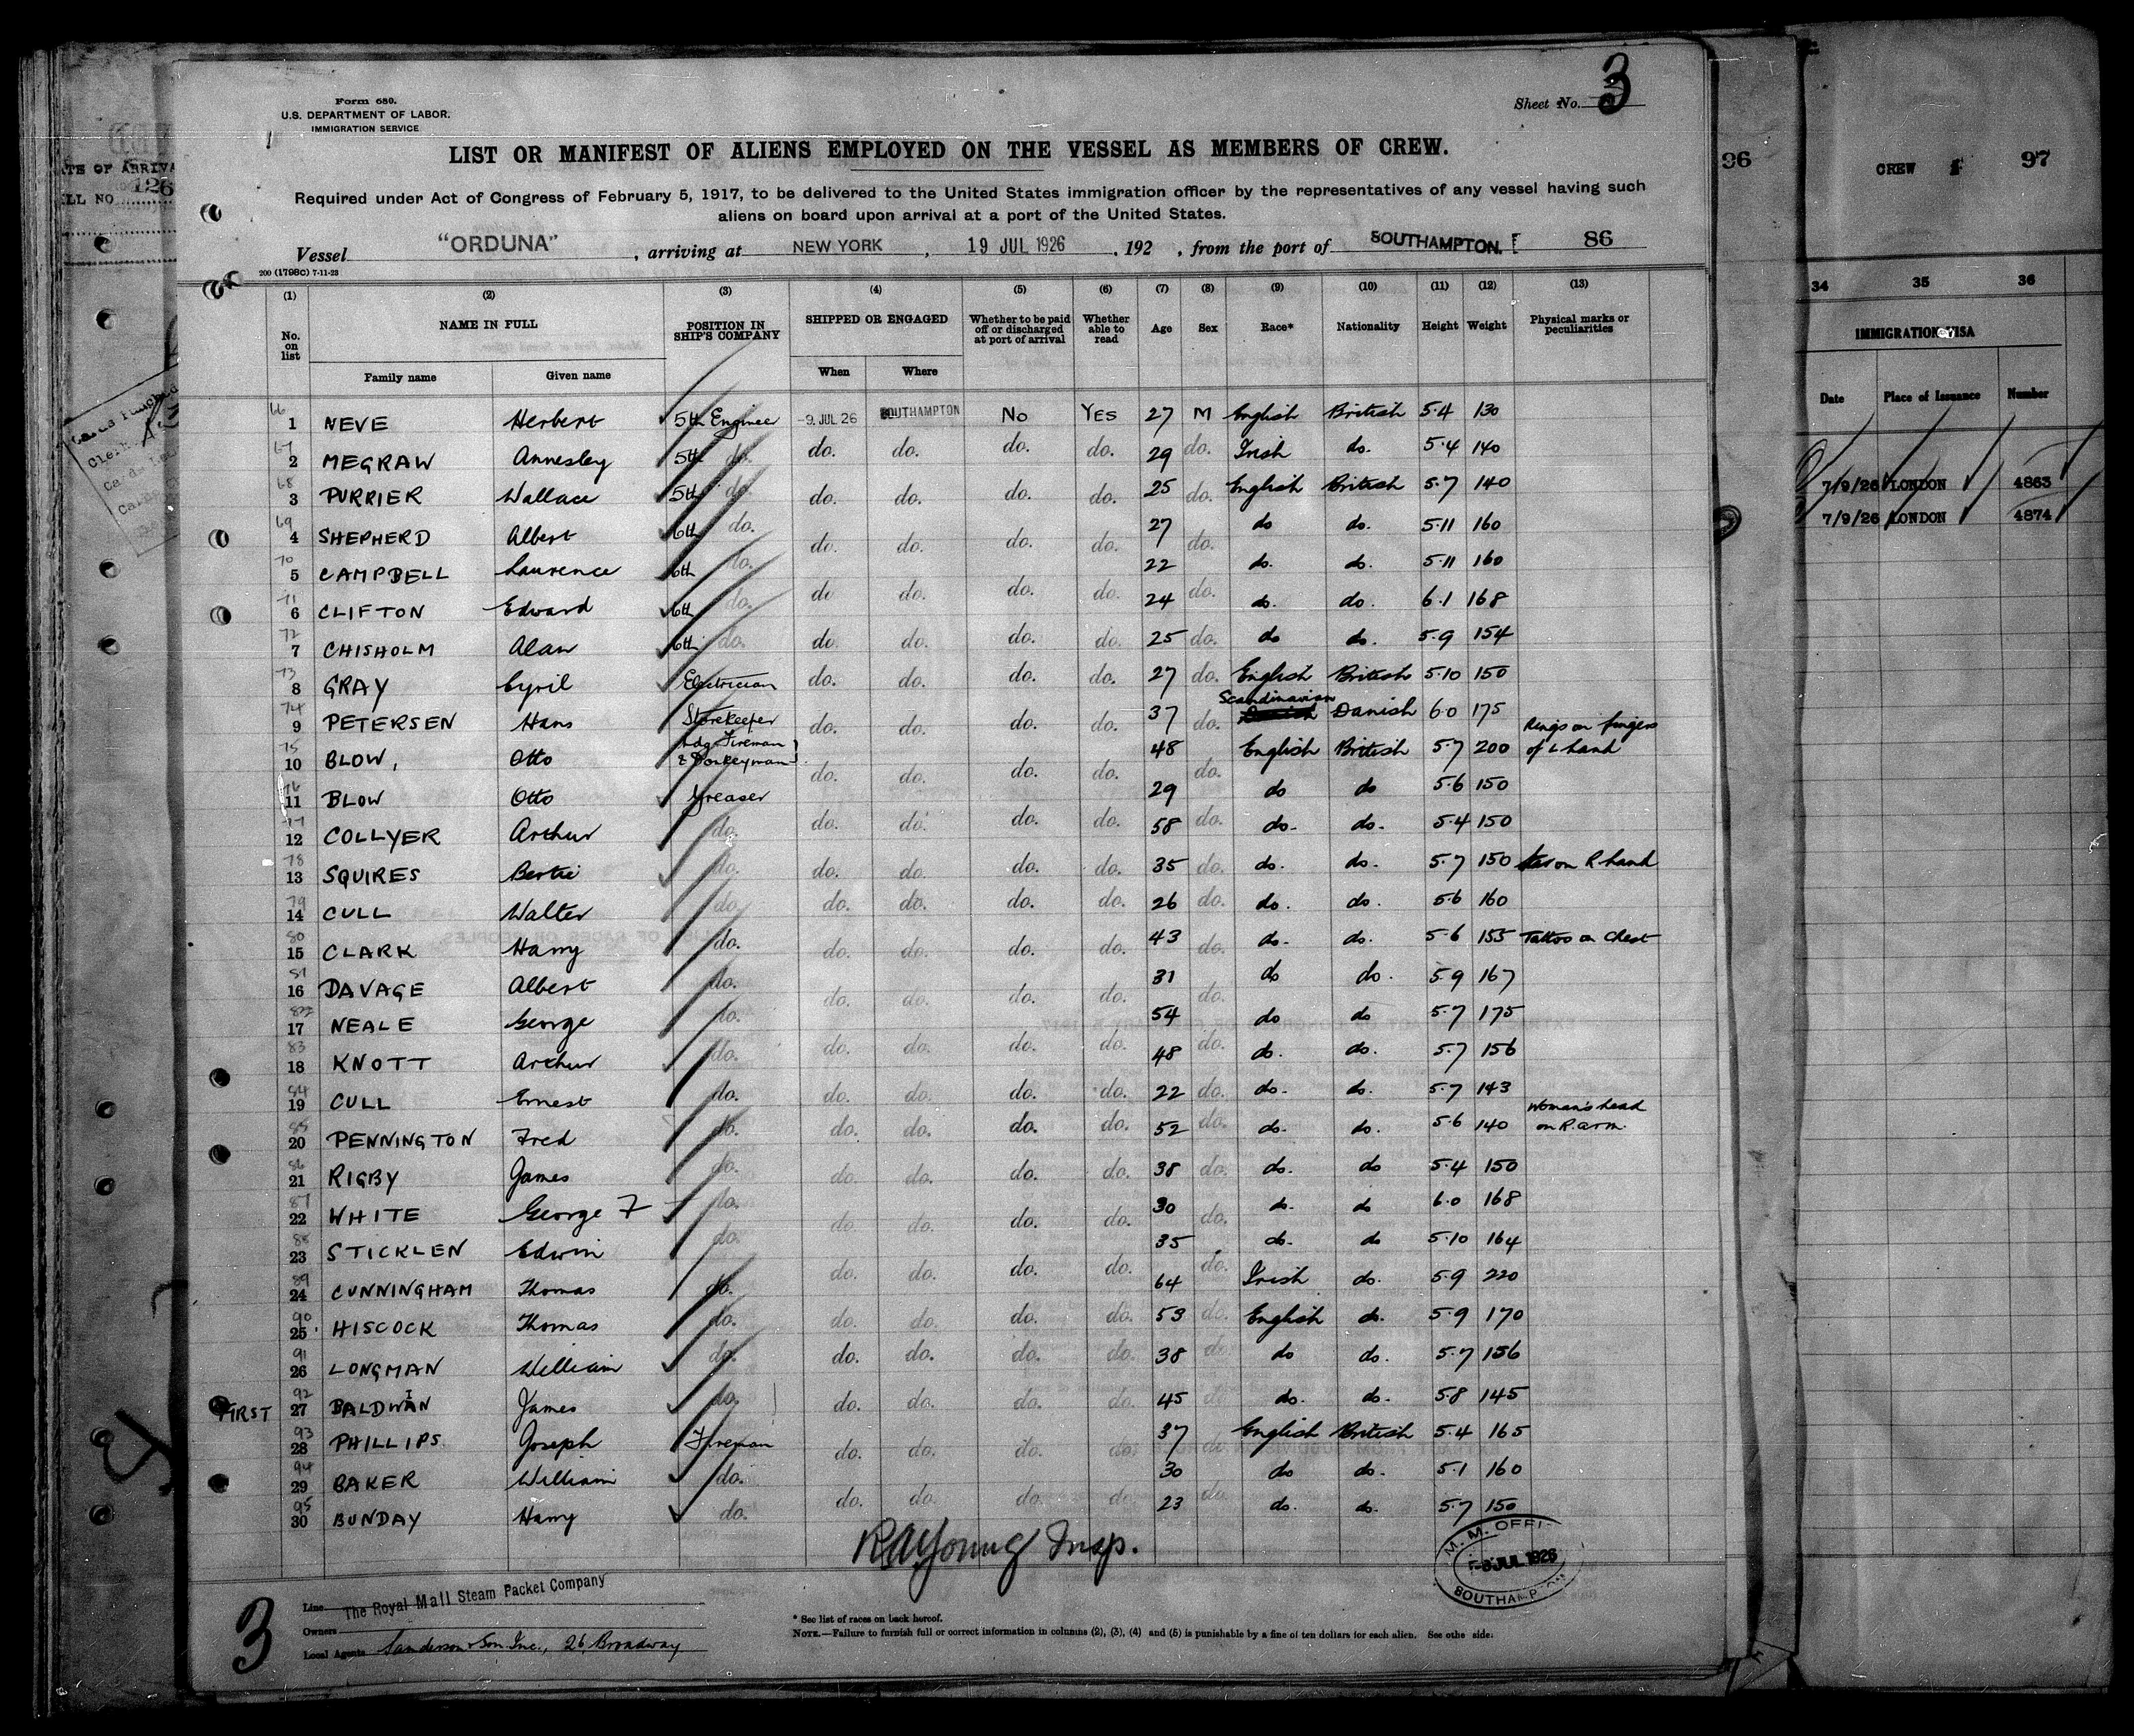 Form 680.
U.S. DEPARTMENT OF LABOR.
IMMIGRATION SERVICE
Sheet No. 3
LIST OR MANIFEST OF ALIENS EMPLOYED ON THE VESSEL AS MEMBERS OF CREW.
Required under Act of Congress of February 5, 1917, to be delivered to the United States immigration officer by the representatives of any vessel having such
aliens on board upon arrival at a port of the United States.
Vessel "ORDUNA", arriving at NEW YORK, 19 JUL 1926, 192 , from the port of SOUTHAMPTON. 86
200 (1798c) 7-11-23
(1) (2) (3) (4) (5) (6) (7) (8) (9) (10) (11) (12) (13)
No. on list NAME IN FULL Family name Given name POSITION IN SHIP'S COMPANY SHIPPED OR ENGAGED When Where Whether to be paid off or discharged at port of arrival Whether able to read Age Sex Race* Nationality Height Weight Physical marks or peculiarities
66 1 NEVE Herbert 5th Engineer -9. JUL 26 SOUTHAMPTON No YES 27 M English British 5.4 130
67 2 MEGRAW Annesley 5th do. do. do. do. do. 29 do. Irish do. 5.4 140
68 3 PURRIER Wallace 5th do. do. do. do. do. 25 do. English British 5.7 140
69 4 SHEPHERD Albert 6th do. do. do. do. do. 27 do. do do. 5.11 160
70 5 CAMPBELL Laurence 6th do. 22 do. do. 5.11 160
71 6 CLIFTON Edward 6th do. do do. do. do. 24 do. do. do. 6.1 168
72 7 CHISHOLM Alan 6th do. do. do. do. do. 25 do. do do. 5.9 154
73 8 GRAY Cyril Electrician do. do. do. do. 27 do. English British 5.10 150
74 9 PETERSEN Hans Storekeeper do. do. do. do. 37 do. Scandinavian Danish 6.0 175
75 10 BLOW, Otto Ldg. Fireman & Donkeyman do. do. do. do. 48 do. English British 5.7 200 Rings on fingers of L hand
76 11 BLOW Otto Greaser 29 do do 5.6 150
77 12 COLLYER Arthur do. do. do. do. do. 58 do. do. do. 5.4 150
78 13 SQUIRES Bertie do. do. do. do. do. 35 do. do. do. 5.7 150 Scar on R hand
79 14 CULL Walter do. do. do. do. do. 26 do. do. do. 5.6 160
80 15 CLARK Harry do. do. do. do. do. 43 do. do. do. 5.6 155 Tattoo on Chest
81 16 DAVAGE Albert do. do. do. do. do. 31 do. do do. 5.9 167
82 17 NEALE George do. 54 do do 5.7 175
83 18 KNOTT Arthur do. do. do. do. do. 48 do. do. do. 5.7 156
84 19 CULL Ernest do. do. do. do. do. 22 do. do. do. 5.7 143
85 20 PENNINGTON Fred do. do. do. do. do. 52 do. do. do. 5.6 140 Woman's head on R. arm.
86 21 RIGBY James do. do. do. do. do. 38 do. do. do 5.4 150
87 22 WHITE George F do. do. do. do. do. 30 do. do. do 6.0 168
88 23 STICKLEN Edwin do. 35 do. do 5.10 164
89 24 CUNNINGHAM Thomas do. do. do. do. do. 64 do. Irish do. 5.9 220
90 25 HISCOCK Thomas do. do. do. do. do. 53 do. English do. 5.9 170
91 26 LONGMAN William do. do. do. do. do. 38 do. do do. 5.7 156
FIRST 92 27 BALDWIN James do. do. do. do. do. 45 do. do. do. 5.8 145
93 28 PHILLIPS Joseph Fireman do. do. do. do. 37 do English British 5.4 165
94 29 BAKER William do. 30 do do. 5.1 160
95 30 BUNDAY Harry do. do. do. do. do. 23 do. do. do. 5.7 150
RA Young Insp.
SOUTHAMPTON
JUL 1926
Line The Royal Mail Steam Packet Company
Owners
Local Agents Sanderson & Son Inc., 26, Broadway
* See list of races on back hereof.
NOTE.—Failure to furnish full or correct information in columns (2), (3), (4) and (5) is punishable by a fine of ten dollars for each alien. See othe side.
3
126
96
CREW 97
34 35 36
IMMIGRATION VISA
Date Place of Issuance Number
7/9/26 LONDON 4863
7/9/26 LONDON 4874